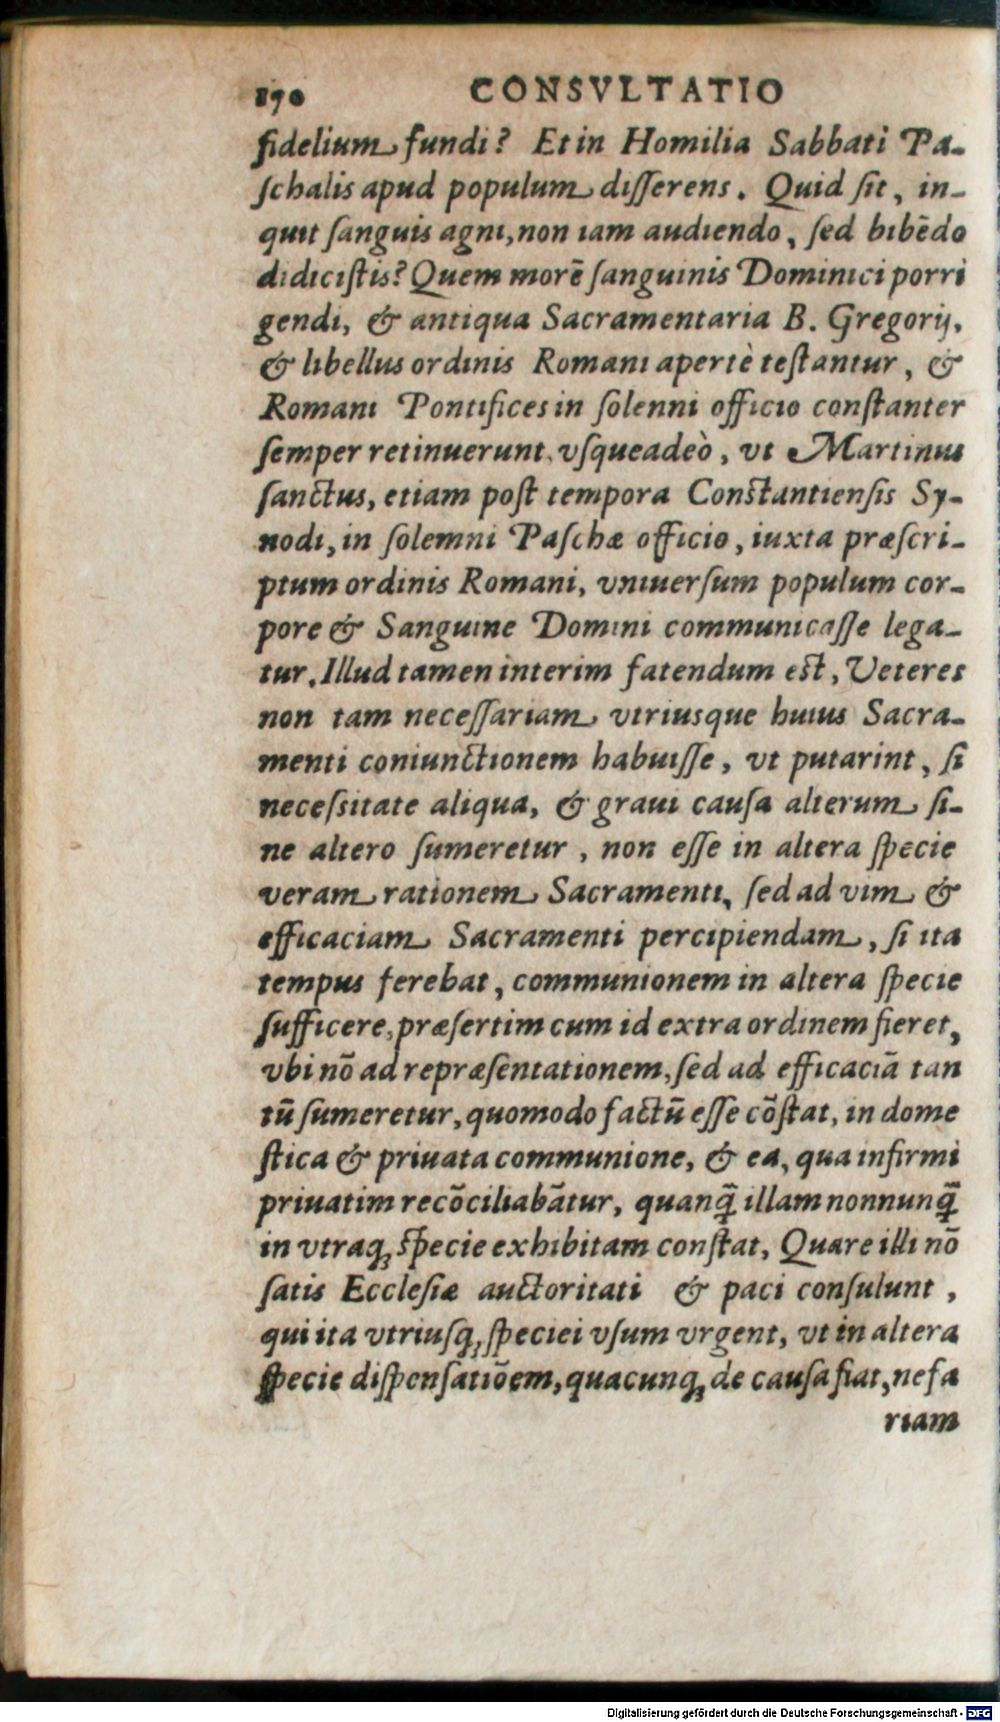 170 CONSVLTATIO
fidelium fundi? Et in Homilia Sabbati Pa-
ſchalis apud populum diſſerens. Quid ſit, in-
quit ſanguis agni, non iam audiendo, ſed bibēdo
didiciſtis? Quem morē ſanguinis Dominici porri
gendi, & antiqua Sacramentaria B. Gregorij,
& libellus ordinis Romani apertè teſtantur, &
Romani Pontifices in ſolenni officio conſtanter
ſemper retinuerunt, vſqueadeò, vt Martinus
ſanctus, etiam poſt tempora Conſtantienſis Sy-
nodi, in ſolemni Paſchæ officio, iuxta præſcri-
ptum ordinis Romani, vniuerſum populum cor-
pore & Sanguine Domini communicaſſe lega-
tur. Illud tamen interim fatendum eſt, Veteres
non tam neceſſariam vtriusque huius Sacra-
menti coniunctionem habuiſſe, vt putarint, ſi
neceſsitate aliqua, & graui cauſa alterum ſi-
ne altero ſumeretur, non eſſe in altera ſpecie
veram rationem Sacramenti, ſed ad vim &
efficaciam Sacramenti percipiendam, ſi ita
tempus ferebat, communionem in altera ſpecie
ſufficere, præſertim cum id extra ordinem fieret,
vbi nō ad repræſentationem, ſed ad efficaciā tan
tū ſumeretur, quomodo factū eſſe cōſtat, in dome
ſtica & priuata communione, & ea, qua infirmi
priuatim recōciliabātur, quanq̄ illam nonnunq̄
in vtraq; ſpecie exhibitam conſtat, Quare illi nō
ſatis Eccleſiæ auctoritati & paci conſulunt,
qui ita vtriuſq; ſpeciei vſum vrgent, vt in altera
ſpecie diſpenſatiōem, quacunq; de cauſa fiat, nefa
riam
Digitalisierung gefördert durch die Deutsche Forschungsgemeinschaft - DFG